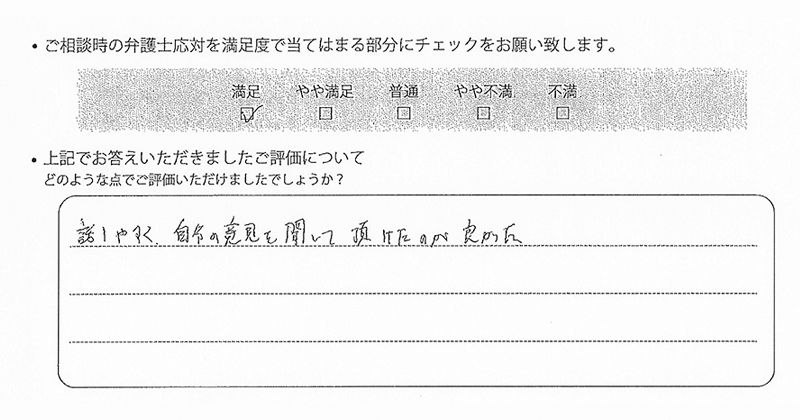 • ご相談時の弁護士応対を満足度で当てはまる部分にチェックをお願い致します。
満足 やや満足 普通 やや不満 不満
☑ □ □ □ □
• 上記でお答えいただきましたご評価について
どのような点でご評価いただけましたでしょうか？
話しやすく、自分の意見を聞いて頂けたのが良かった